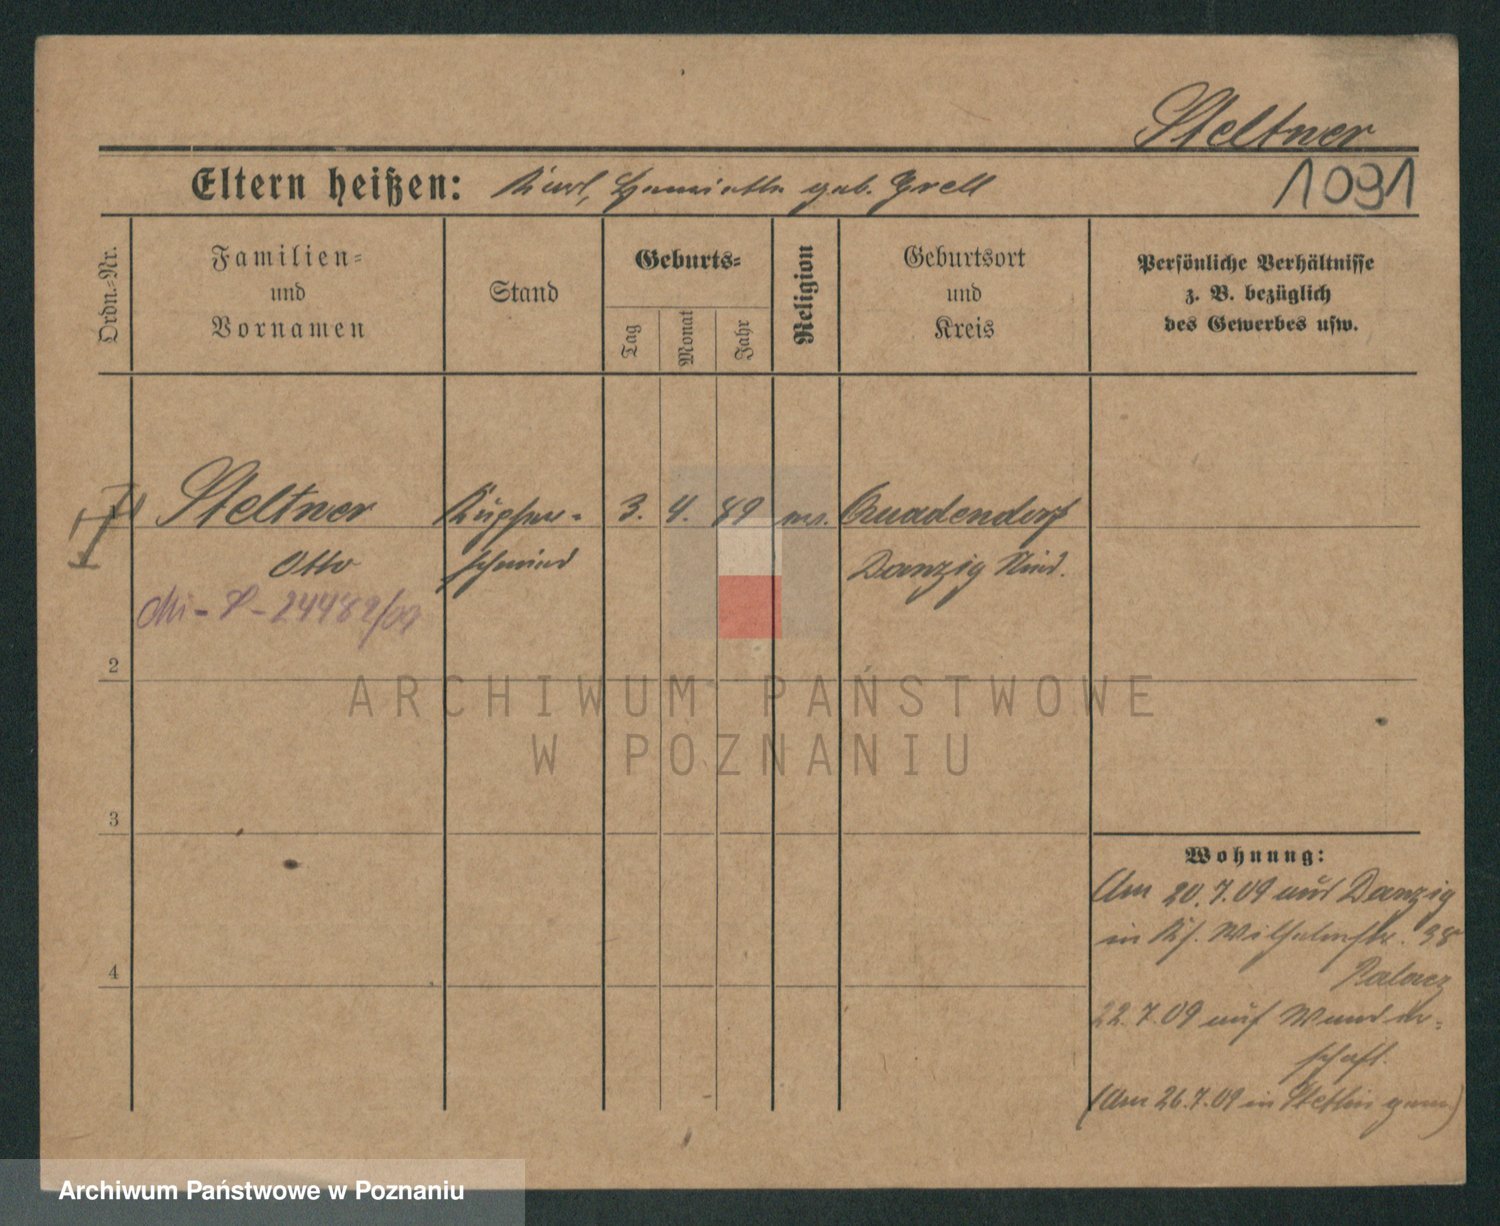 Steltner
1091
Eltern heißen: Karl, Henriette geb. Grell
Ordn.=Nr.
Familien=
und
Vornamen
Stand
Geburts=
Tag
Monat
Jahr
Religion
Geburtsort
und
Kreis
Persönliche Verhältnisse
z. B. bezüglich
des Gewerbes usw.
Steltner Kupfer= 3. 4. 89 ev. Quadendorf
Otto schmied Danzig Nied.
2
3
4
ARCHIWUM PAŃSTWOWE
W POZNANIU
Wohnung:
Am 20.7.09 aus Danzig
in Wilhelmstr. 38
22.7.09 auf Wander=
schaft.
(Am 26.7.09 in Stettin gem.)
Archiwum Państwowe w Poznaniu